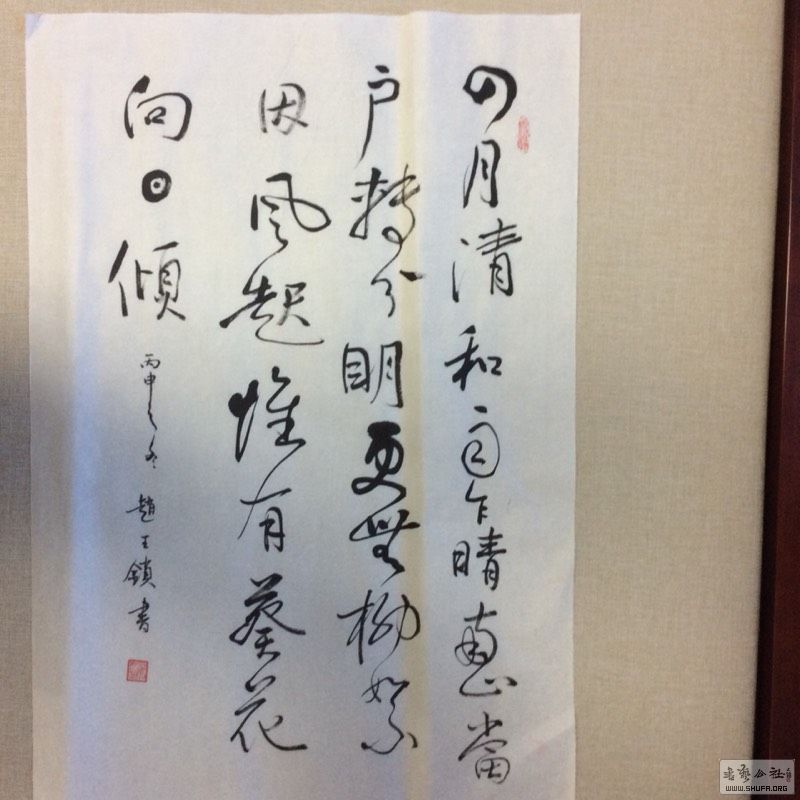 四月清和雨乍晴南山當
户轉分明更無柳絮
因風起惟有葵花
向日傾
丙申之冬 趙玉鎖書
書藝公社
WWW.SHUFA.ORG